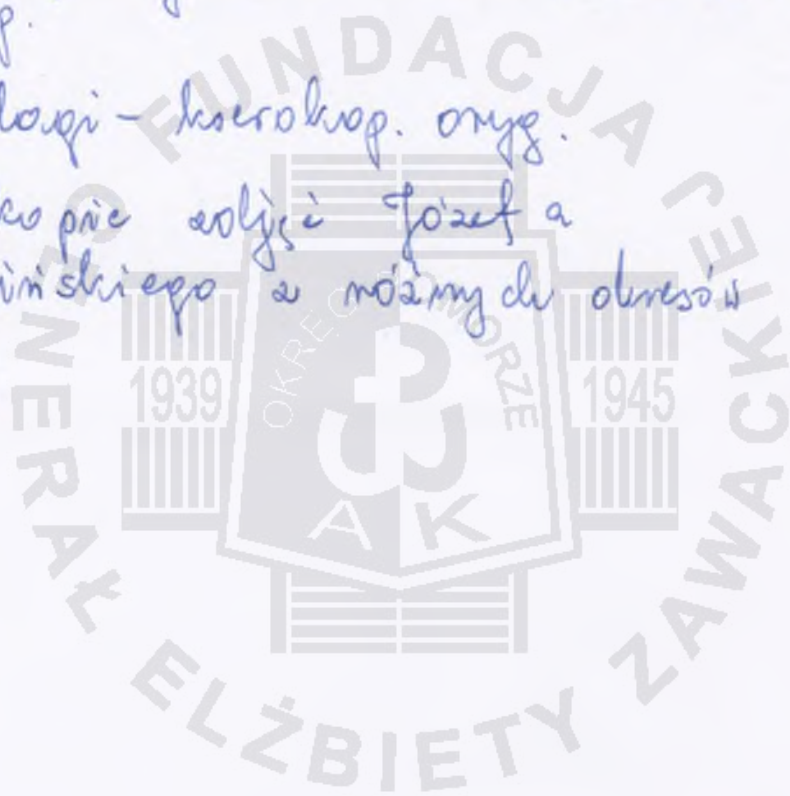 p.
logi - kserokop. oryg.
kopie zdjęć Józefa
ińskiego z różnych okresów
FUNDACJA GENERAŁ ELŻBIETY ZAWACKIEJ
OKRĘG POMORZE
1939
1945
AK